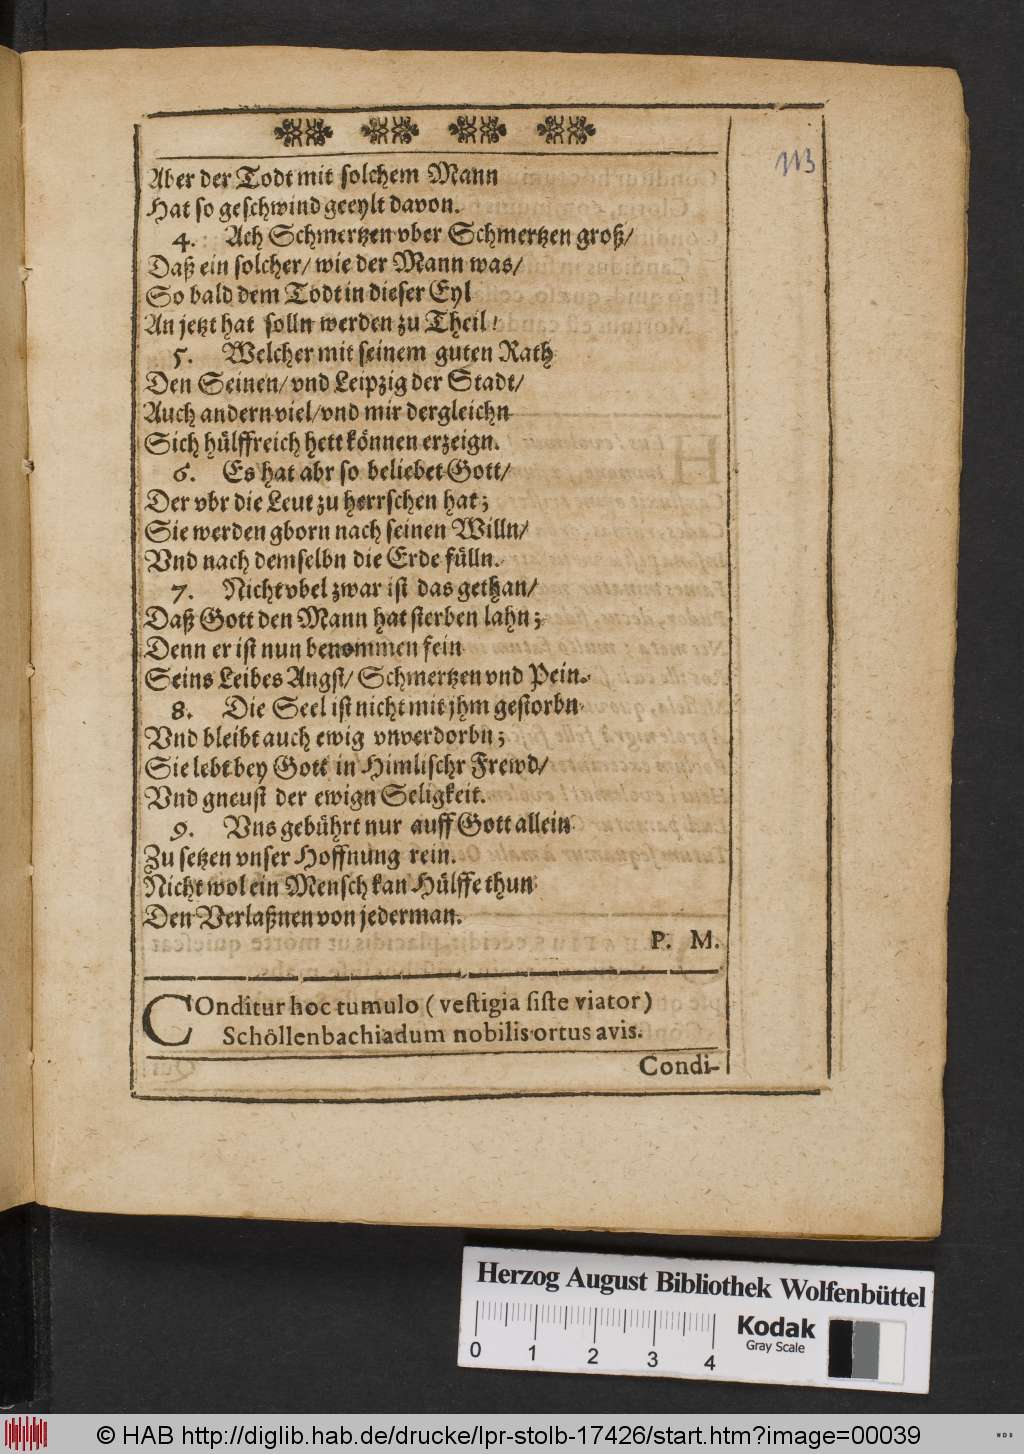 113
Aber der Todt mit solchem Mann
Hat so geschwind geeylt davon.
4. Ach Schmertzen vber Schmertzen groß/
Daß ein solcher/ wie der Mann was/
So bald dem Todt in dieser Eyl
An jetzt hat solln werden zu Theil!
5. Welcher mit seinem guten Rath
Den Seinen/ vnd Leipzig der Stadt/
Auch andern viel/ vnd mir dergleichn
Sich hülffreich hett können erzeign.
6. Es hat abr so beliebet Gott/
Der vbr die Leut zu herrschen hat;
Sie werden gborn nach seinen Willn/
Vnd nach demselbn die Erde fülln.
7. Nicht vbel zwar ist das gethan/
Daß Gott den Mann hat sterben lahn;
Denn er ist nun benommen fein
Seins Leibes Angst/ Schmertzen vnd Pein.
8. Die Seel ist nicht mit jhm gestorbn
Vnd bleibt auch ewig vnverdorbn;
Sie lebt bey Gott in Himlischr Frewd/
Vnd gneust der ewign Seligkeit.
9. Vns gebührt nur auff Gott allein
Zu setzen vnser Hoffnung rein.
Nicht wol ein Mensch kan Hülffe thun
Den Verlaßnen von jederman.
P. M.
COnditur hoc tumulo (vestigia siste viator)
Schöllenbachiadum nobilis ortus avis.
Condi-
Herzog August Bibliothek Wolfenbüttel
0 1 2 3 4
Kodak
Gray Scale
© HAB http://diglib.hab.de/drucke/lpr-stolb-17426/start.htm?image=00039